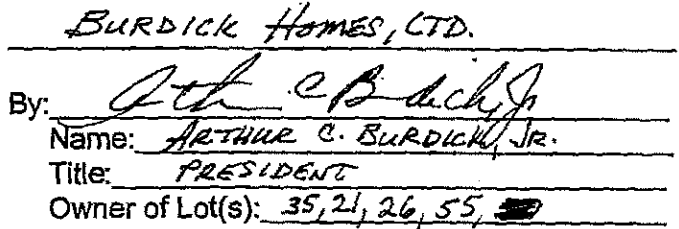 BURDICK HOMES, LTD.
By: Arthur C Burdick, Jr
Name: ARTHUR C. BURDICK, JR.
Title: PRESIDENT
Owner of Lot(s): 35, 21, 26, 55,